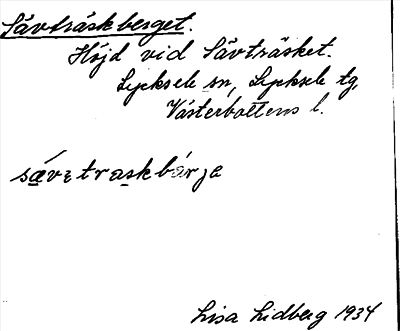 Sävträskberget.
Höjd vid Sävträsket.
Lycksele sn, Lycksele tg,
Västerbottens l.
sǽvɛtraskbärjə
Lisa Lidberg 1934